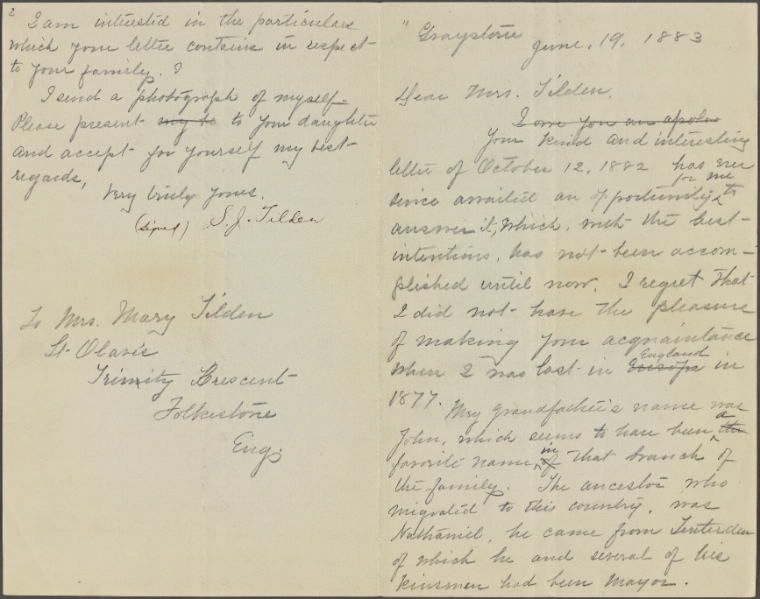 " Graystone
June, 19, 1883
Dear Mrs. Tilden.
I owe you an apolo
Your kind and interesting
letter of October 12, 1882 has ever
since awaited an opportunity for me to
answer it, which, with the best
intentions, has not been accom-
plished until now. I regret that
I did not have the pleasure
of making your acquaintance
when I was last in Europe England in
1877.
My grandfather's name was
John, which seems to have been a the
favorite name, in of that branch of
the family. The ancestor who
migrated to this country, was
Nathaniel, he came from Tenterden
of which he and several of his
kinsmen had been Mayor.
2
I am interested in the particulars
which your letter contains in respect
to your family. ?
I send a photograph of myself
Please present my to to your daughter
and accept for yourself my best
regards,
Very truly yours.
(signed) S. J. Tilden
To Mrs. Mary Tilden
St Olave's
Trinity Crescent
Folkestone
Eng;